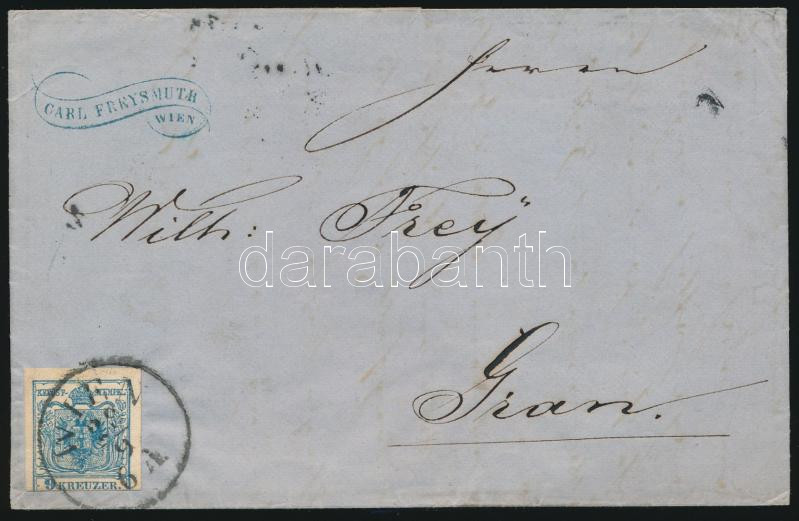 CARL FREYSMUTH
WIEN
Herrn
Wilh: Frey
darabanth
Gran.
WIEN
KKPOST-STEMPEL
9 KREUZER.